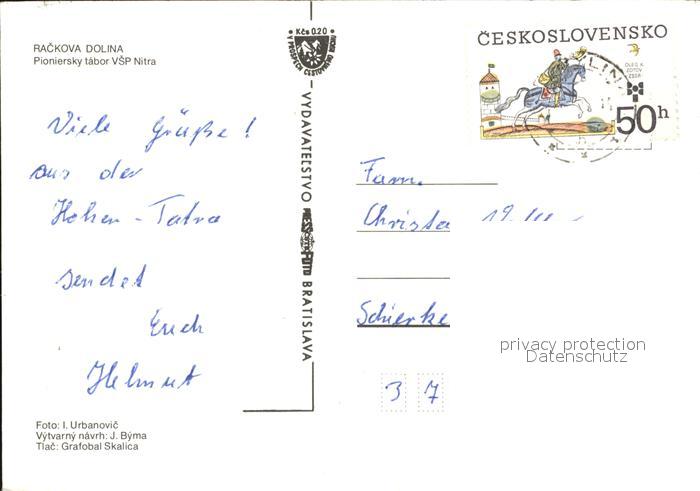 RAČKOVA DOLINA
Pioniersky tábor VŠP Nitra
Kčs 0,20
V PROSPECH CESTOVNÉHO RUCHU
VYDAVATEĽSTVO
BRATISLAVA
ČESKOSLOVENSKO
OLEG K. ZOTOV
ZSSR
50h
Viele Grüße!
aus der
Hohen - Tatra
sendet
Euch
Helmut
Fam.
Christa
19
Schierke
37
privacy protection
Datenschutz
Foto: I. Urbanovič
Výtvarný návrh: J. Býma
Tlač: Grafobal Skalica